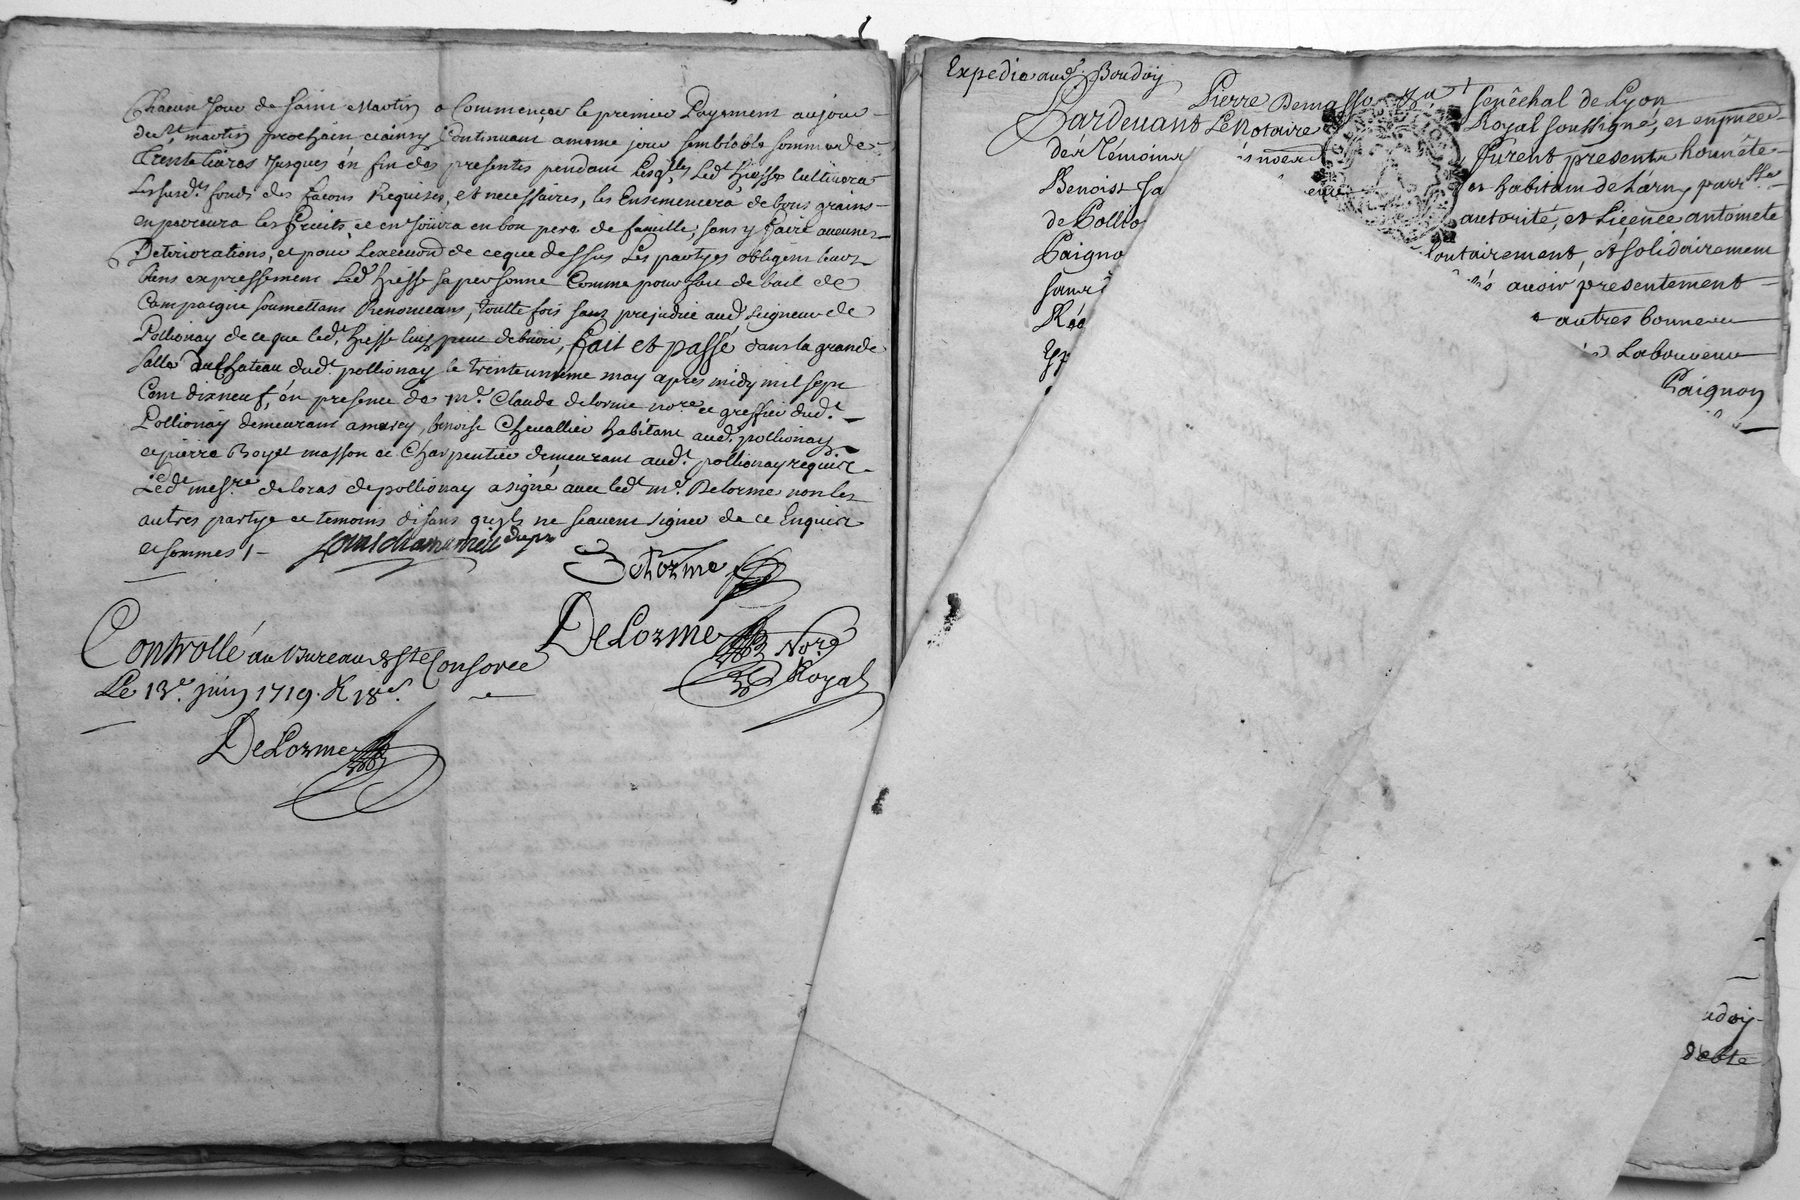 Chacun Jour de saint Martin a Commencer le premier Payement au jour
de st martin prochain et ainsy Continuant a meme jour semblable somme de
trente livres jusques en fin des presentes pendant lesqlles Ledt hiesse cultivera
Lessusdts fonds des façons Requises, et necessaires, les Ensemencera de bons grains
en percevra les fruits et en jouira en bon pere de famille, sans y faire aucunes
Deteriorations, et pour Lexecuon de ce que dessus Les partyes obligent leurs
biens expressement Ledt hiesse sa personne Comme pour fait de bail de
Campaigne soumettans Renonceans, toutte fois sans prejudice audt seigneur de
Pollionay de ce que ledt hiesse luy peut debvoir, fait et passé dans la grande
salle du Chateau dudt pollionay le trente unieme may apres midy mil sept
Cent dix neuf, en presence de Mre Claude delorme nore et greffier dudt
Pollionay demeurant a marcy, benoist Chevallier habitant audt pollionay
et pierre Boyet masson et Charpentier demeurant audt pollionay requis
Ledt mesre de loras de pollionay a signé avec ledt mre Delorme non les
autres partye et temoins disans quils ne scavent signer de ce Enquis
et sommes /-
Delorme
DeLorme Nore
Royal
Controllé au Bureau de Ste Consorce
Le 13e juin 1719. R 18s
DeLorme
Expedié audt Boudoy
Pierre Demasso
senêchal de Lyon
Pardevant Le Notaire
Royal soussigné, et en pnce
des témoins
furent presents honnête
Benoist
et habitans de Larny parrsse
de Pollio
autorité, et Licence
Paigno
lontairement, et solidairement
sans
avoir presentement
autres bonne
Laboureur
Paignon
udoy